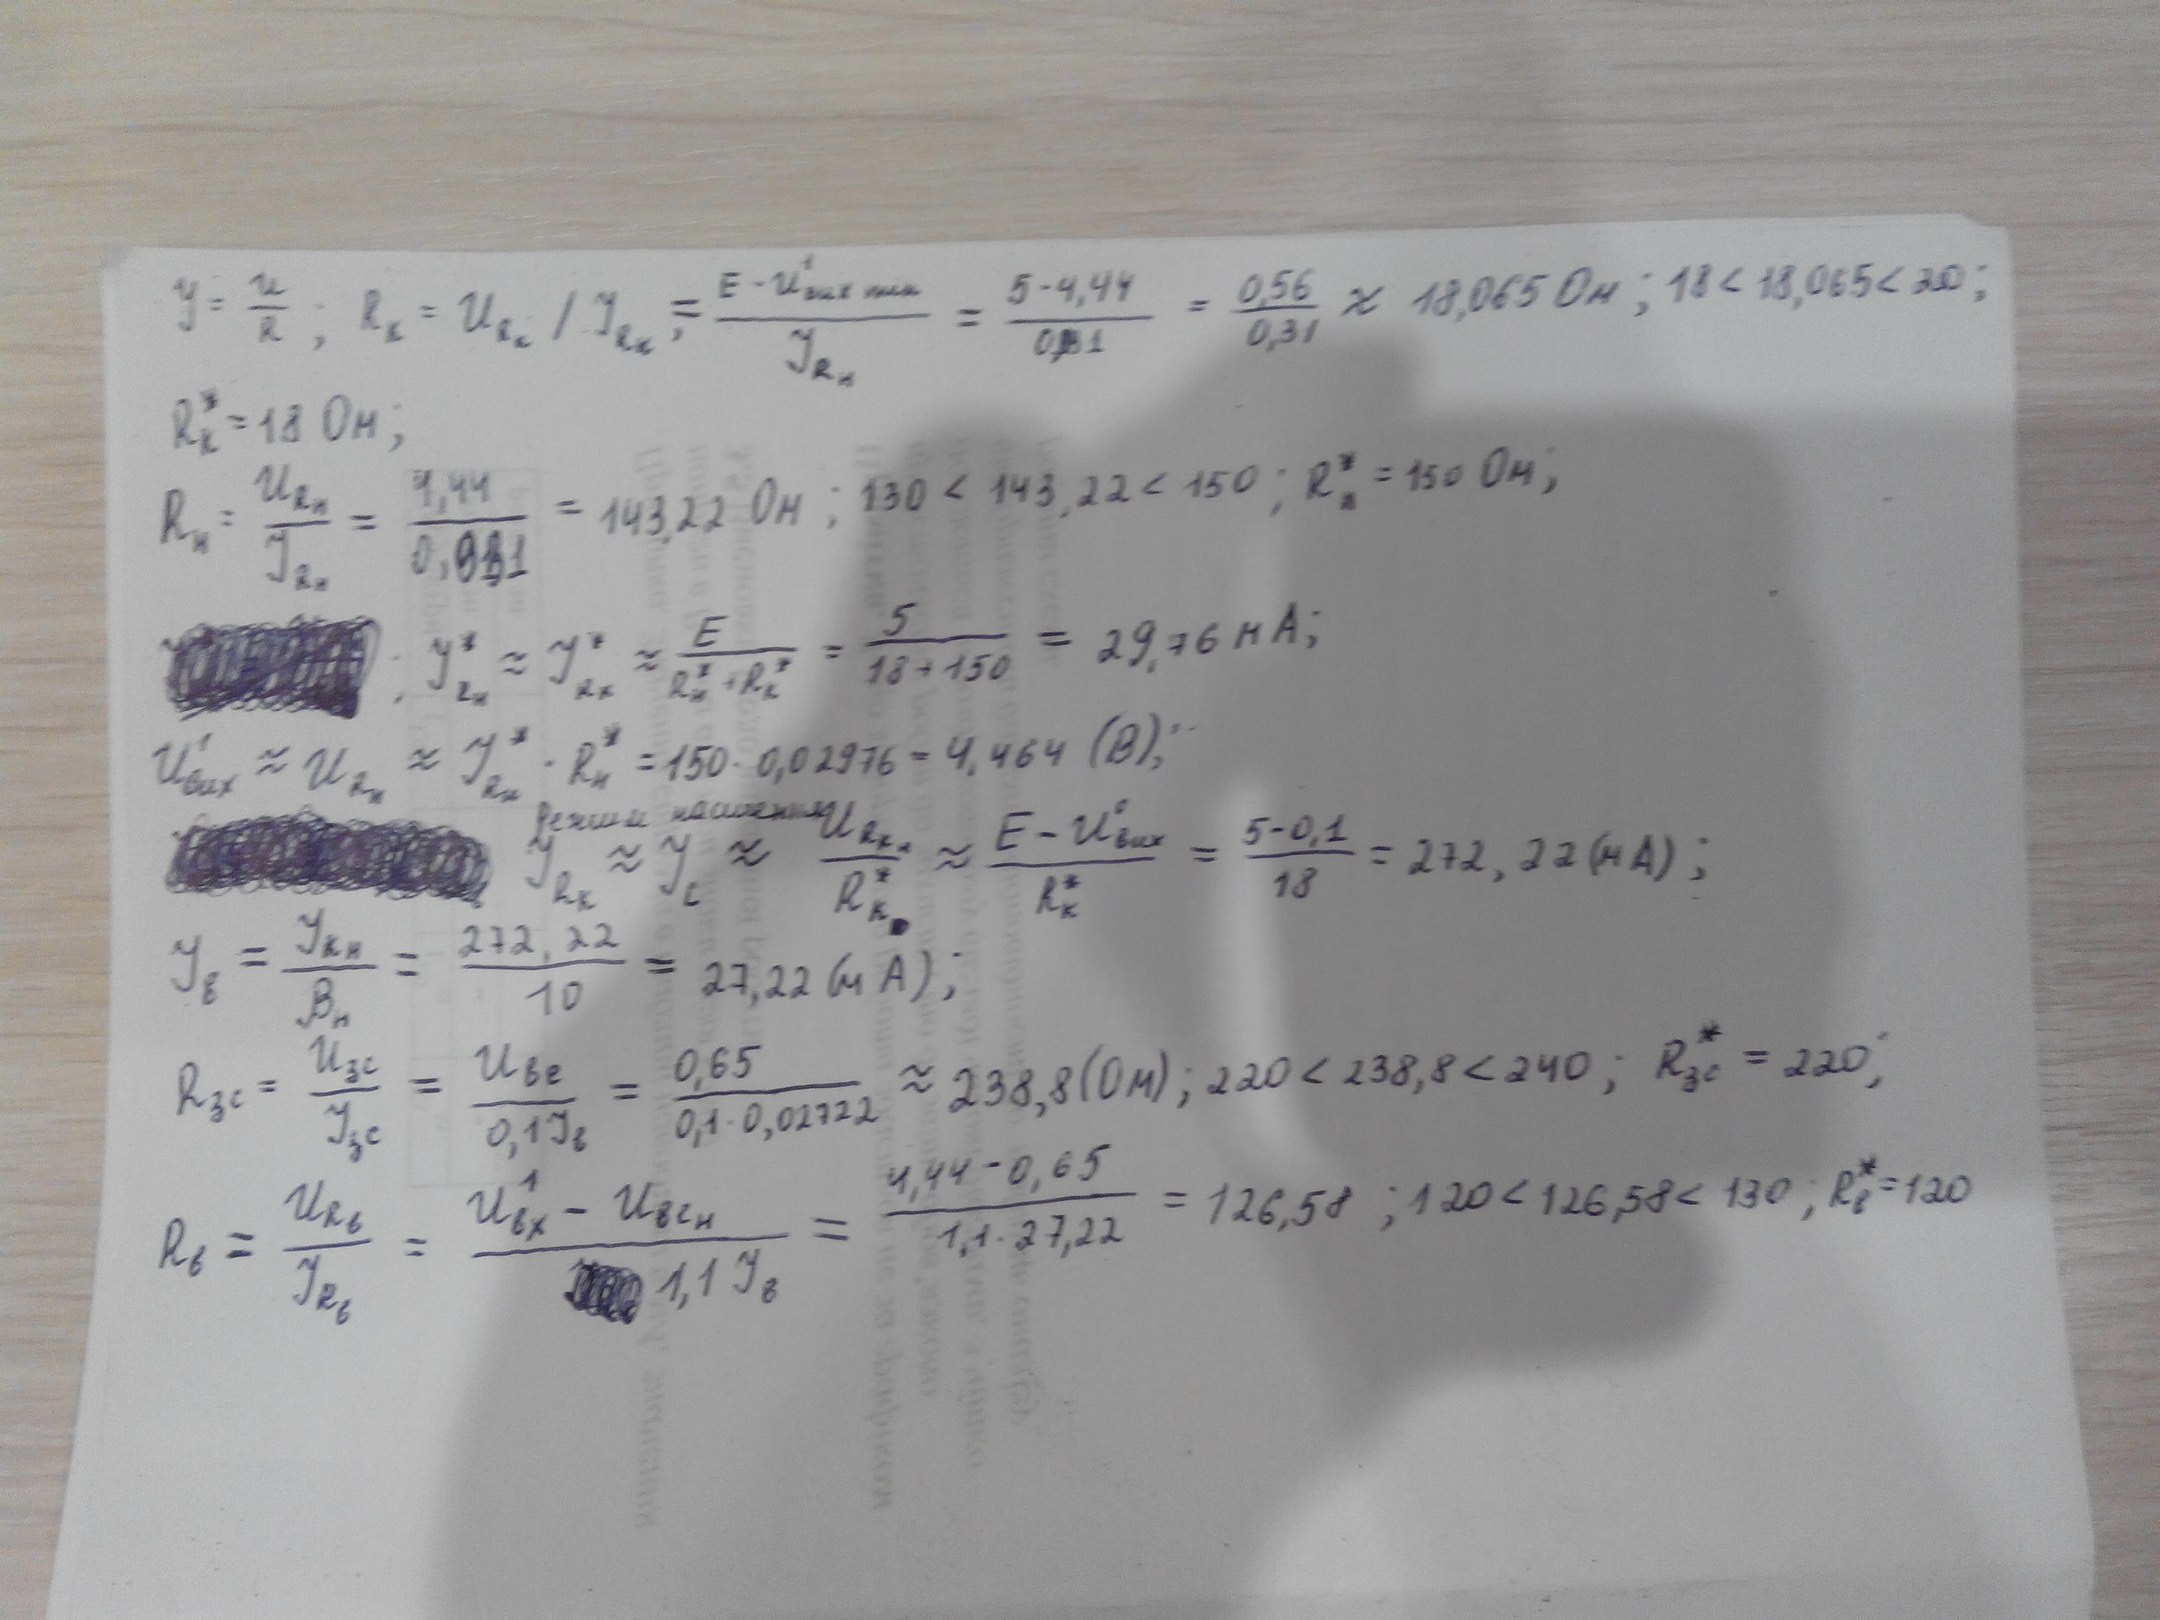 I = U/R; Rк = U_Rк / I_Rк = (E - U¹вих min)/I_Rн = (5 - 4,44)/0,031 = 0,56/0,31 ≈ 18,065 Ом; 18 < 18,065 < 20;
R*к = 18 Ом;
Rн = U_Rн/I_Rн = 4,44/0,031 = 143,22 Ом; 130 < 143,22 < 150; R*н = 150 Ом;
; I*_Rн ≈ I*_Rк ≈ E/(R*н + R*к) = 5/(18+150) = 29,76 мА;
U¹вих ≈ U_Rн ≈ I*_Rн · R*н = 150 · 0,02976 = 4,464 (В);
Режим насыщения
I_Rк ≈ I_C ≈ U_Rкн/R*к ≈ (E - U⁰вих)/R*к = (5 - 0,1)/18 = 272,22 (мА);
I_б = I_кн/β_н = 272,22/10 = 27,22 (мА);
Rзс = Uзс/Iзс = Uве/0,1I_б = 0,65/(0,1 · 0,02722) ≈ 238,8 (Ом); 220 < 238,8 < 240; R*зс = 220;
R_б = U_Rб/I_Rб = (U¹вх - Uвен)/1,1 I_б = (4,44 - 0,65)/(1,1 · 27,22) = 126,58; 120 < 126,58 < 130; R*_б = 120